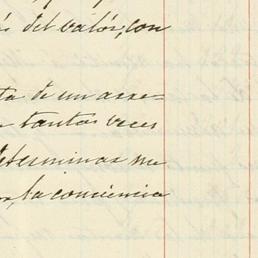 s del valór, con
ta de un arre-
tantas veces
determinar me
la conciencia